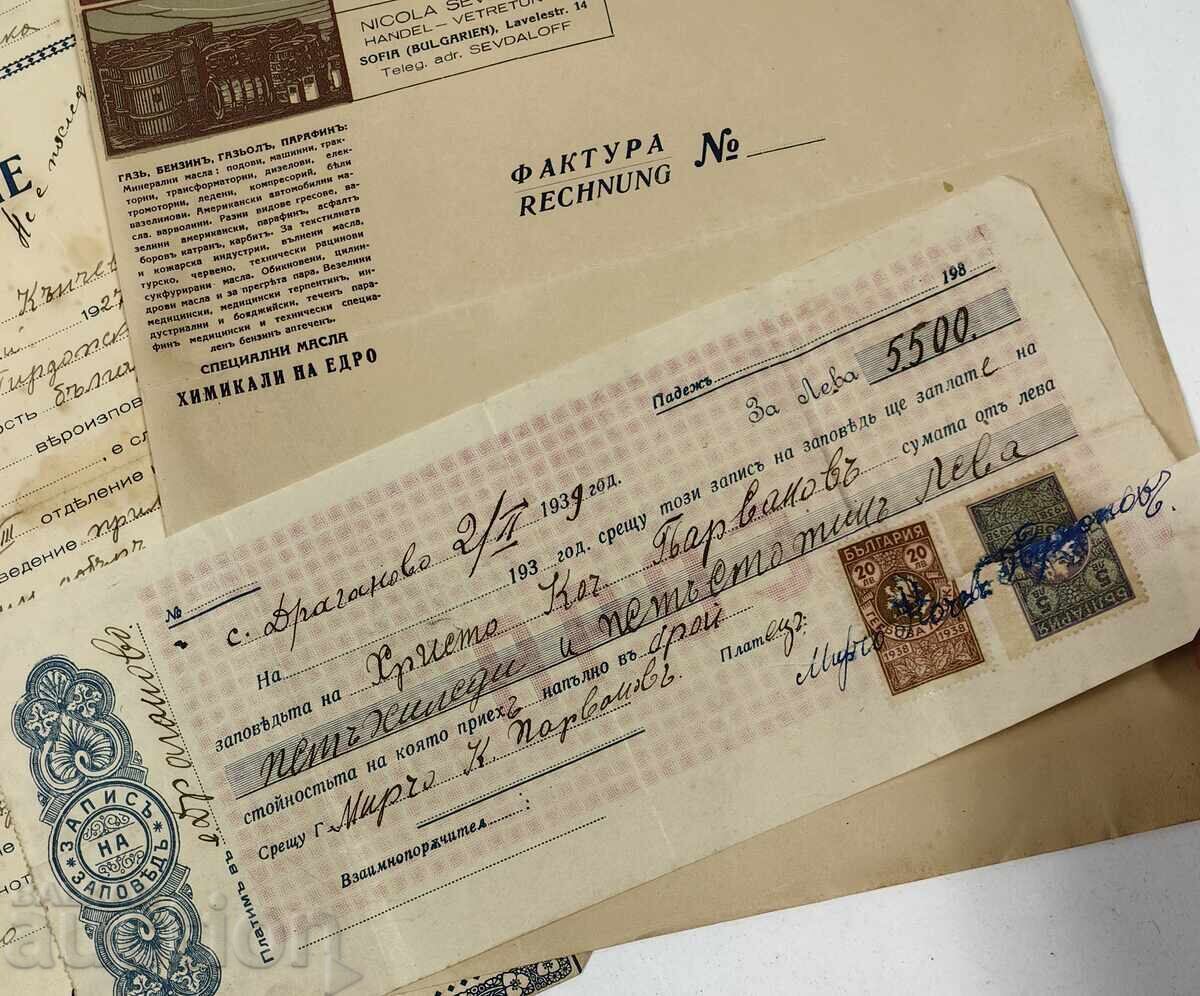 NICOLA
HANDEL - VETRETUN
SOFIA (BULGARIEN), Lavelestr. 14
Teleg. adr. SEVDALOFF
ГАЗЬ, БЕНЗИНЪ, ГАЗЬОЛЪ, ПАРАФИНЪ:
Минерални масла: подови, машинни, трак-
торни, трансформаторни, дизелови, елек-
тромоторни, ледени, компресорий, бѣли
вазелинови. Американски автомобилни ма-
сла, варволини. Разни видове гресове, ва-
зелини американски, парафинъ, асфалтъ
боровъ катранъ, карбитъ. За текстилната
и кожарска индустрии, вълнени масла,
турско, червено, технически рацинови
сукфурирани масла. Обикновени, цилин-
дрови масла и за прегрѣта пара. Везелини
медицински, медицински терпентинъ, ин-
дустриални и бояджийски, теченъ пара-
финъ медицински и технически специа-
ленъ бензинъ аптеченъ.
СПЕЦИАЛНИ МАСЛА
ХИМИКАЛИ НА ЕДРО
ФАКТУРА №
RECHNUNG
Не е послед
Кънчев
1927
бълг
вѣроизпов
, е сл
III отдѣление
ведение при
Падежъ 198
№ За Лева 5500.
с. Драганово 2/II 1939 год.
На 193 год. срещу този запись на заповѣдь ще заплате на
заповѣдьта на Христо Коч. Първановъ сумата отъ лева
петь хиляди и петьстотинъ Лева
стойностьта на която приехъ напълно въ брой
Срещу Г. Мирчо К. Първановъ.
Платецъ:
Мирчо Кочевъ Първановъ.
Взаимнопорѫчител:
Платимъ въ с. Драганово
ЗАПИСЪ
НА
ЗАПОВѢДЪ
БЪЛГАРИЯ
20 ЛВ
20 ЛВ
ГЕРБОВА
1938 1938
БЪЛГАРИЯ
5
auction